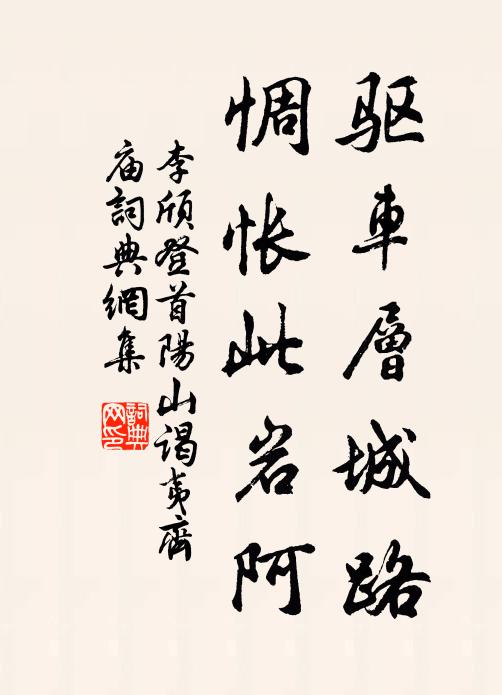 驱車層城路
惆怅此岩阿
李颀登首陽山谒夷齊
庙詞典網集
詞典
网印